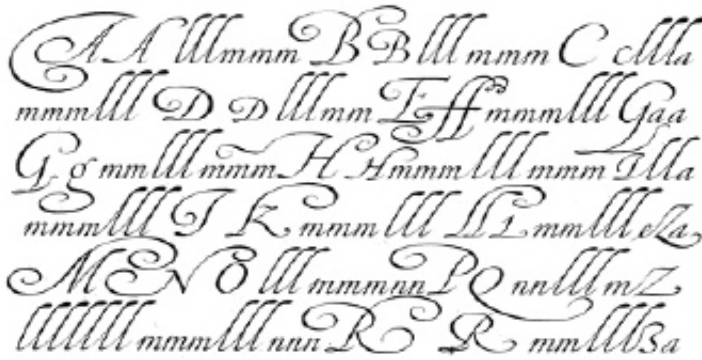 A A lll mmm B B lll mmm C cllla
mmmlll D D lll mm E ff mmmlll Gaa
G g mmlll mmm H Hmmm lll mmm Illa
mmmlll I K mmm lll LL L mmlll eZa
M E N O lll mmmnn P Q nnlll m Z
lllllll mmmlll nnn R R mmlll3a